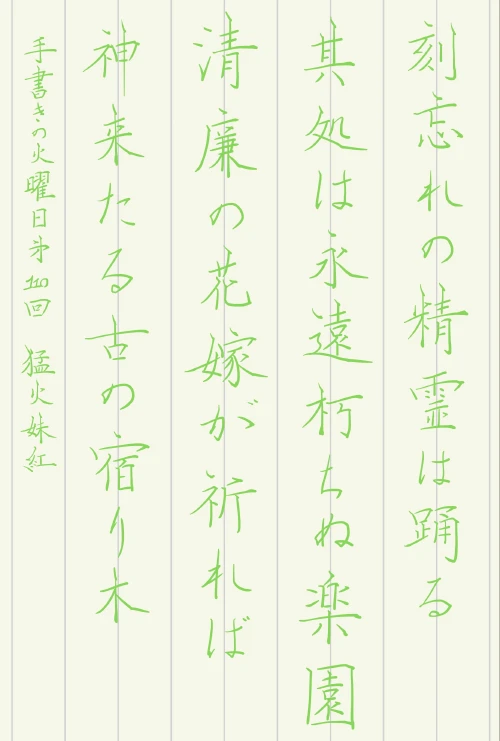 刻忘れの精霊は踊る
其処は永遠朽ちぬ楽園
清廉の花嫁が祈れば
神来たる古の宿り木
手書きの火曜日第140回 猛火妹紅